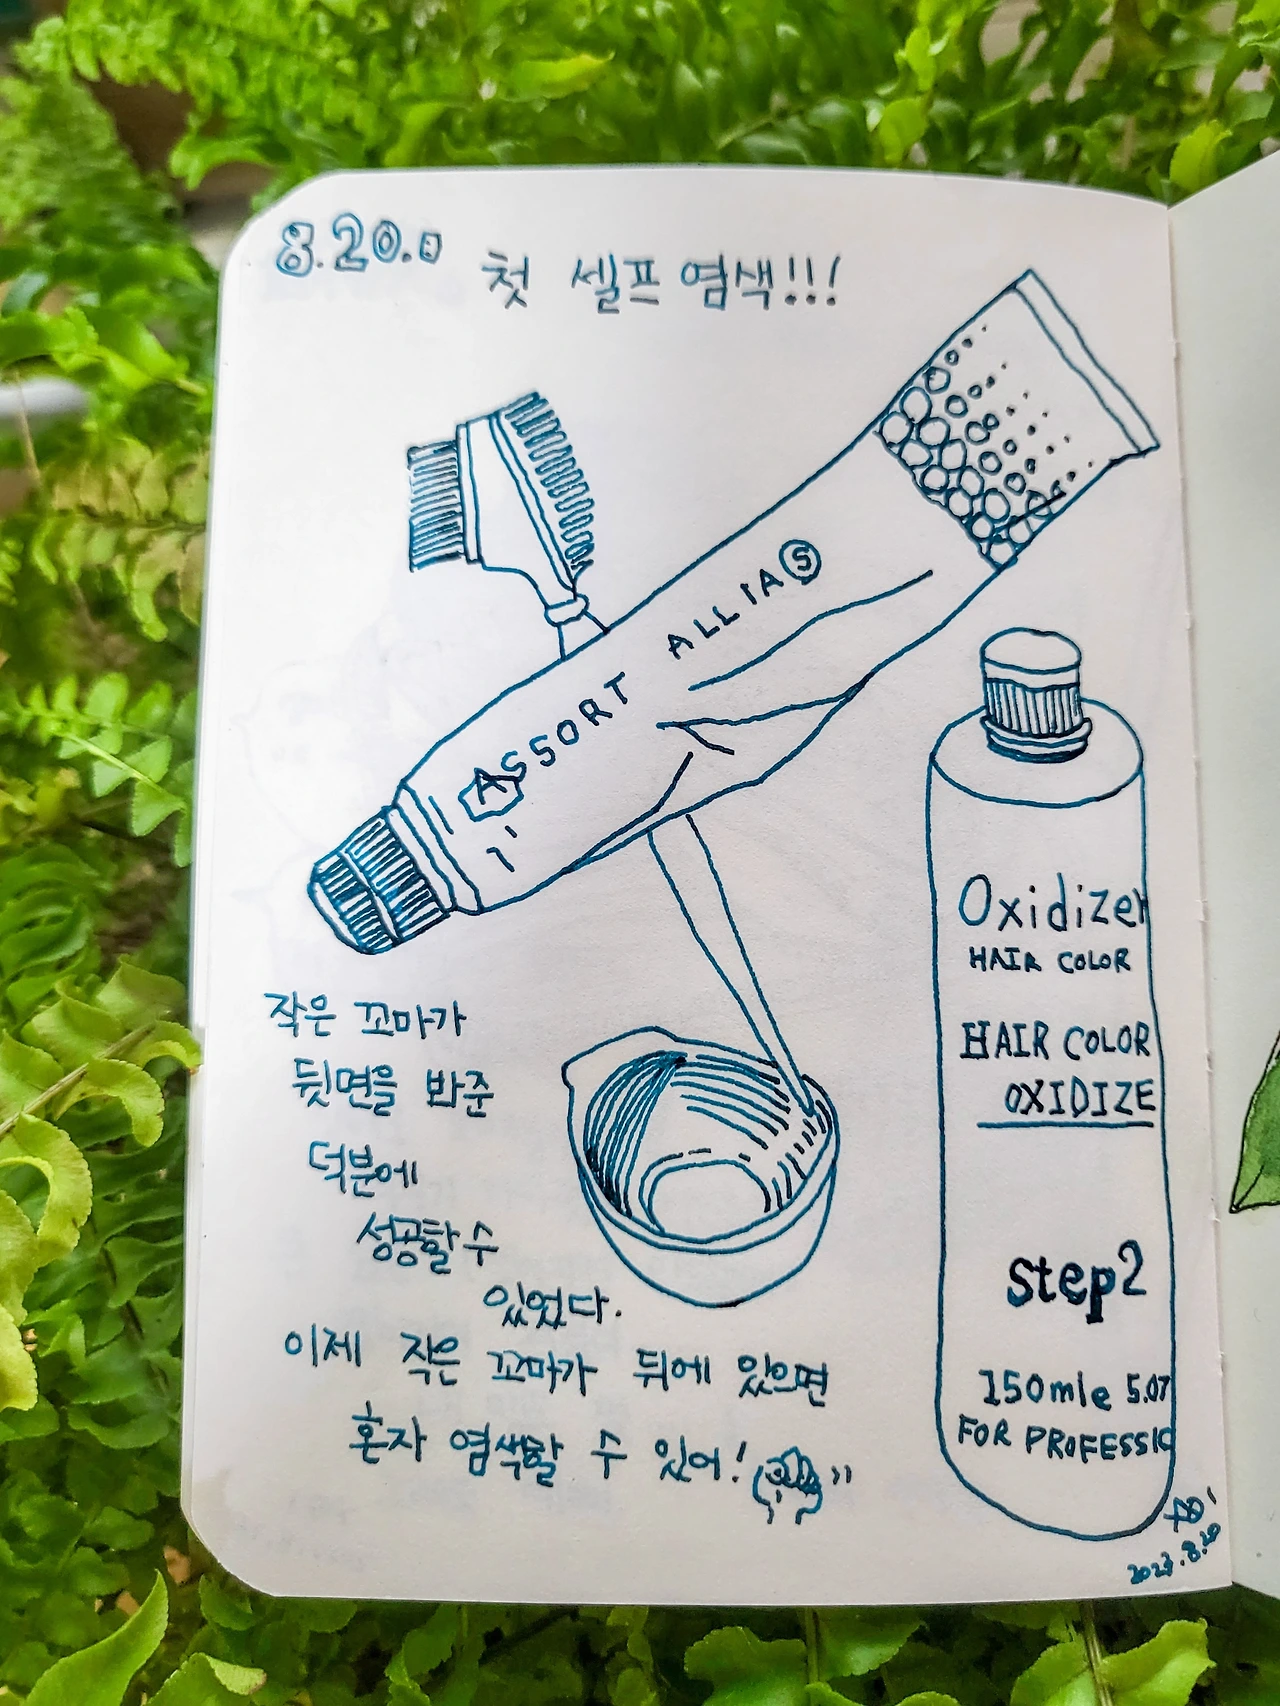 8.20.日
첫 셀프 염색!!!
ASSORT ALLIA Ⓢ
Oxidizer
HAIR COLOR
HAIR COLOR
OXIDIZE
step2
150mle 5.07
FOR PROFESSIO
작은 꼬마가
뒷면을 봐준
덕분에
성공할 수
있었다.
이제 작은 꼬마가 뒤에 있으면
혼자 염색할 수 있어!
2023.8.20